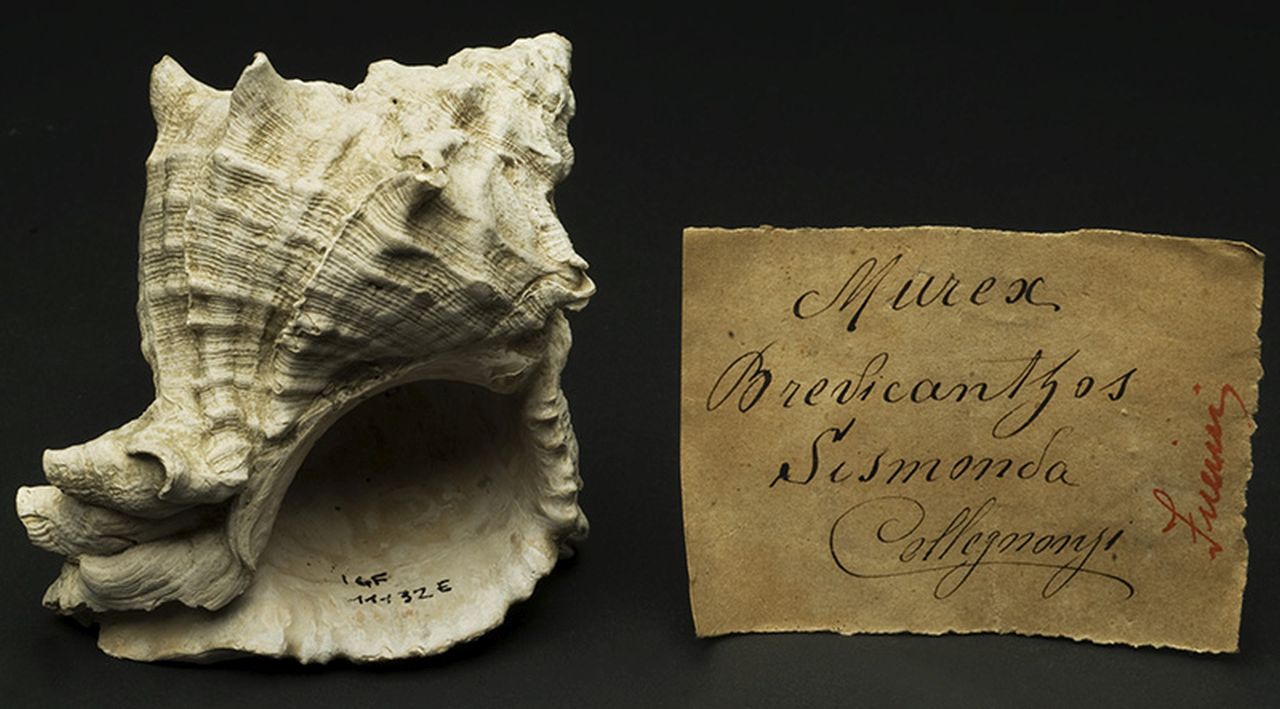 IGF
11132E
Murex
Brevicanthos
Sismonda
Collegnongi